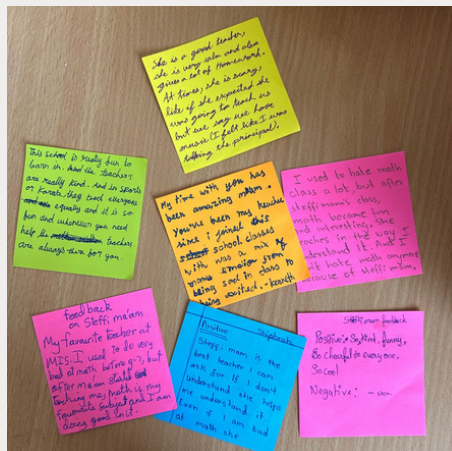 She is a good teacher,
she is very calm and also
gives a lot of Homework.
At times, she is scary,
like if she expected she
was going to teach us
but we say we have
music (I felt like I was
the principal).
This school is really fun to
learn in. And the teachers
are really kind. And in sports
or Karate, they coach everyone
equally and it is so
fun and whenever you need
help teachers
are always there for you.
My time with you has
been amazing mam.
You've been my teacher
since i joined this
school. classes
with was a mix of
many from
being sad in class to
being excited. -
I used to hate math
class a lot but after
steffi mam's class,
math become fun
and interesting. She
teaches in the way I
understand it. And I
don't hate math anymore
because of steffi mam.
feedback
on Steffi ma'am
My favourite teacher at
MIS. I used to do very
bad at math before gr-7, but
after ma'am started
teaching me, math is my
favourite subject and I am
doing good in it.
Positive
Steffi mam is the
best teacher I can
ask for. If I don't
understand she helps
me understand it.
Even if I am bad
at math she
Steffi mam feedback
Positive: So kind, funny,
So cheerful to everyone.
So cool
Negative: -